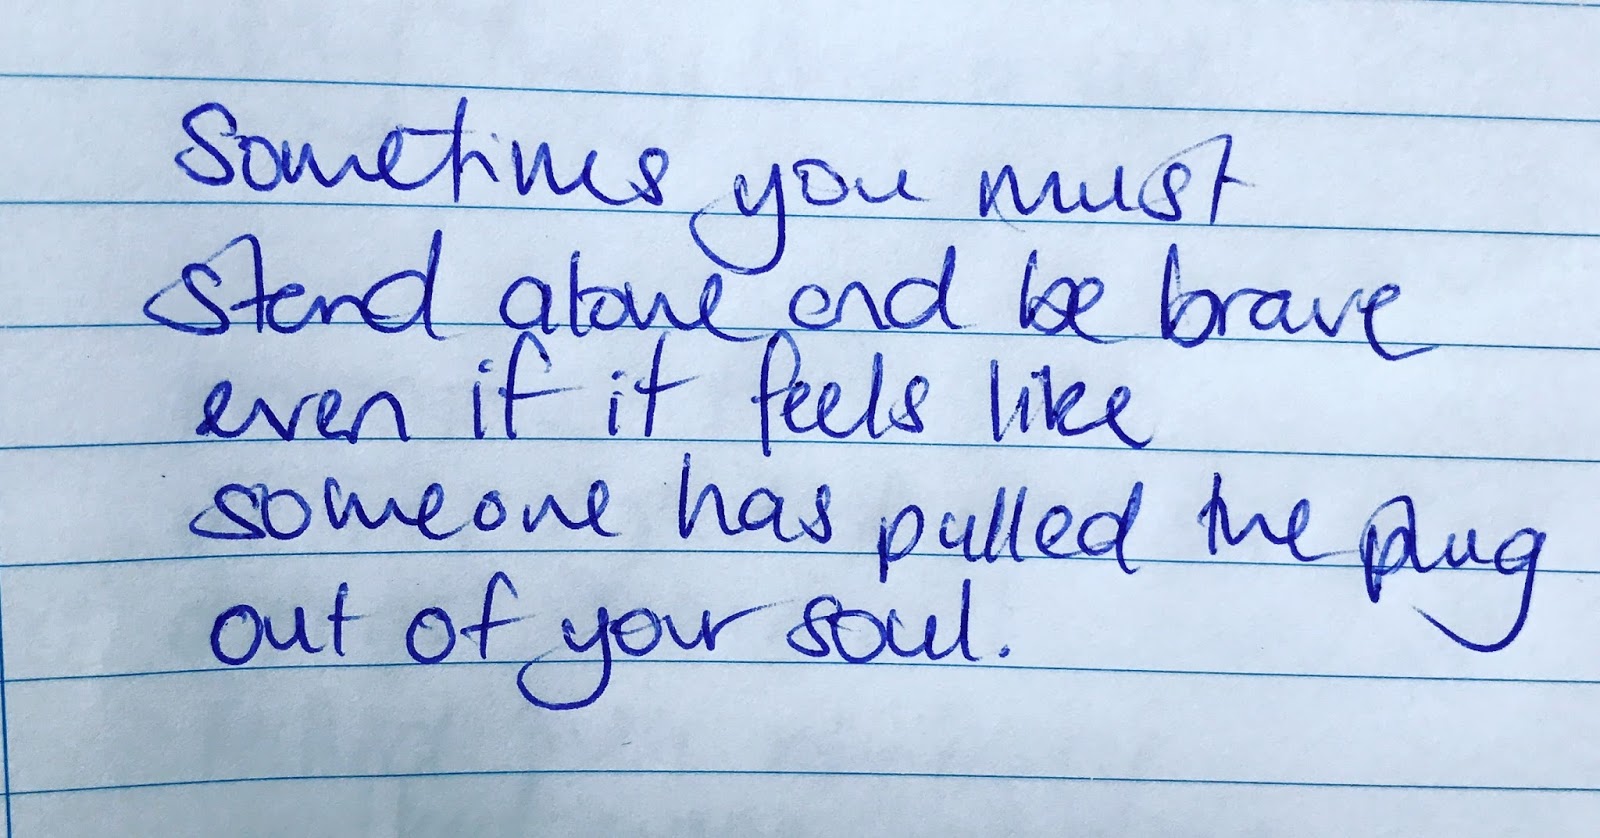 Sometimes you must
stand alone and be brave
even if it feels like
someone has pulled the plug
out of your soul.